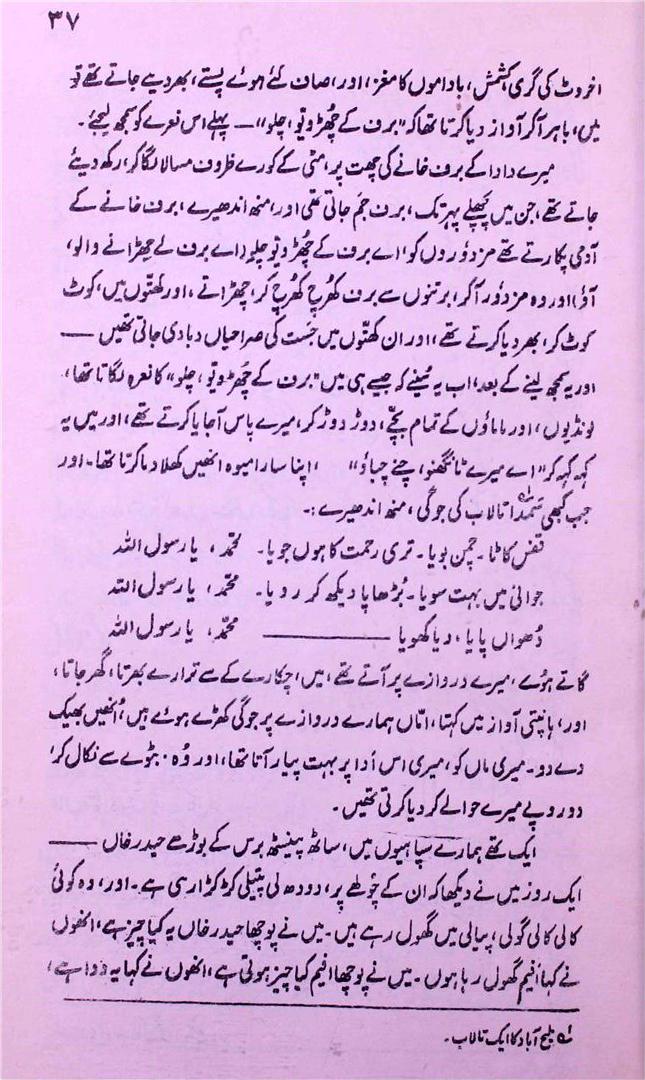 ۳۷
اخروٹ کی گری، کشمش، باداموں کا مغز، اور، صاف کئے ہوئے پستے، بھر دیے جاتے تھے تو
میں، باہر آ کر آواز دیا کرتا تھا کہ "برف کے چُھڑو تو، چلو" — پہلے اس نعرے کو سمجھ لیجئے۔
میرے دادا کے برف خانے کی چھت پر، مٹی کے کورے ظروف مسالا لگا کر، رکھ دیئے
جاتے تھے، جن میں پچھلے پہر تک، برف جم جاتی تھی اور، منھ اندھیرے، برف خانے کے
آدمی پکارتے تھے مزدوروں کو، اے برف کے چُھڑو تو چلو (اے برف کے چھڑانے والو،
آؤ) اور وہ مزدور آ کر، برتنوں سے برف کھُرچ کھُرچ کر، چھڑاتے، اور کھتّوں میں، کوٹ
کوٹ کر، بھر دیا کرتے تھے، اور ان کھتّوں میں جست کی صراحیاں دبا دی جاتی تھیں —
اور یہ سمجھ لینے کے بعد، اب یہ سُنیے کہ جیسے ہی میں "برف کے چُھڑو تو، چلو" کا نعرہ لگاتا تھا،
لونڈیوں، اور ماماؤں کے تمام بچّے، دوڑ دوڑ کر، میرے پاس آ جایا کرتے تھے، اور میں یہ
کہہ کہہ کر "اے میرے ٹانگھنو، چنے چباؤ" ، اپنا سارا میوہ انھیں کھلا دیا کرتا تھا۔ اور
جب کبھی تالاب کی جوگی، منھ اندھیرے :۔
قفس کاٹا۔ چمن بویا۔ تری رحمت کا ہوں جویا۔ محمّد، یا رسول اللہ
جوانی میں بہت سویا۔ بُڑھاپا دیکھ کر رویا۔ محمّد، یا رسول اللہ
دُھواں پایا، دیا کھویا ——— محمّد، یا رسول اللہ
گاتے ہوئے، میرے دروازے پر آتے تھے، میں، چکارے کے سے ترارے بھرتا، گھر جاتا،
اور، ہانپتی آواز میں کہتا، امّاں ہمارے دروازے پر جوگی کھڑے ہوئے ہیں، اُنھیں بھیک
دے دو۔ میری ماں کو، میری اس ادا پر بہت پیار آتا تھا، اور وُہ، بٹوے سے نکال کر،
دو روپے میرے حوالے کر دیا کرتی تھیں۔
ایک تھے ہمارے سپاہیوں میں، ساٹھ پینسٹھ برس کے بوڑھے حیدر خاں —
ایک روز میں نے دیکھا کہ ان کے چولھے پر، دودھ کی پتیلی کڑکڑا رہی ہے۔ اور، وہ کوئی
کالی کالی گولی، پیالی میں گھول رہے ہیں۔ میں نے پوچھا حیدر خاں یہ کیا چیز ہے، انھوں
نے کہا افیم گھول رہا ہوں۔ میں نے پوچھا افیم کیا چیز ہوتی ہے، انھوں نے کہا یہ دوا ہے،
ملیح آباد کا ایک تالاب۔